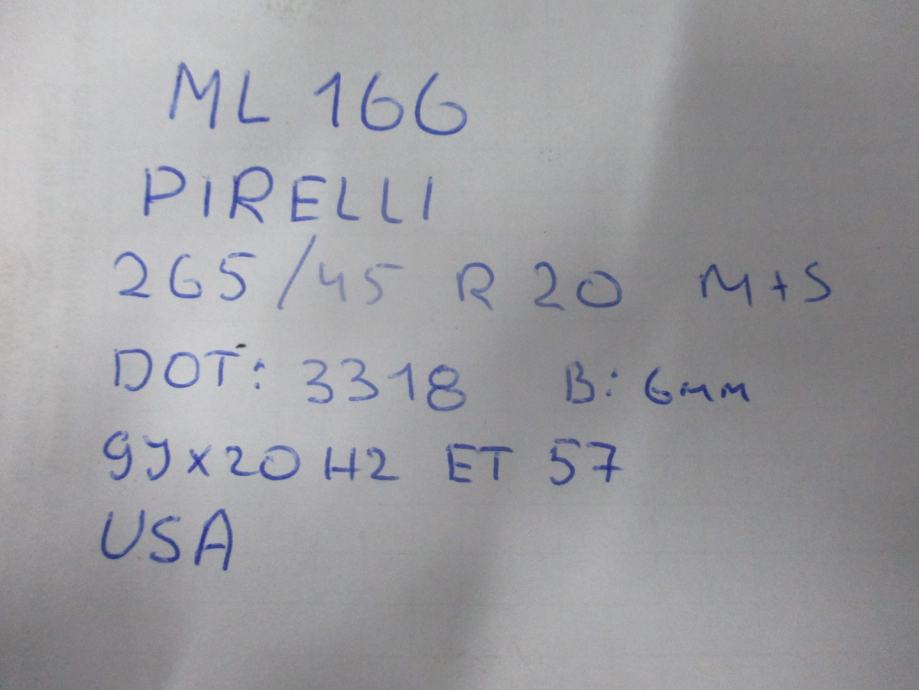 ML 166
PIRELLI
265/45 R 20 M+S
DOT: 3318 B: 6mm
9Jx20 H2 ET 57
USA